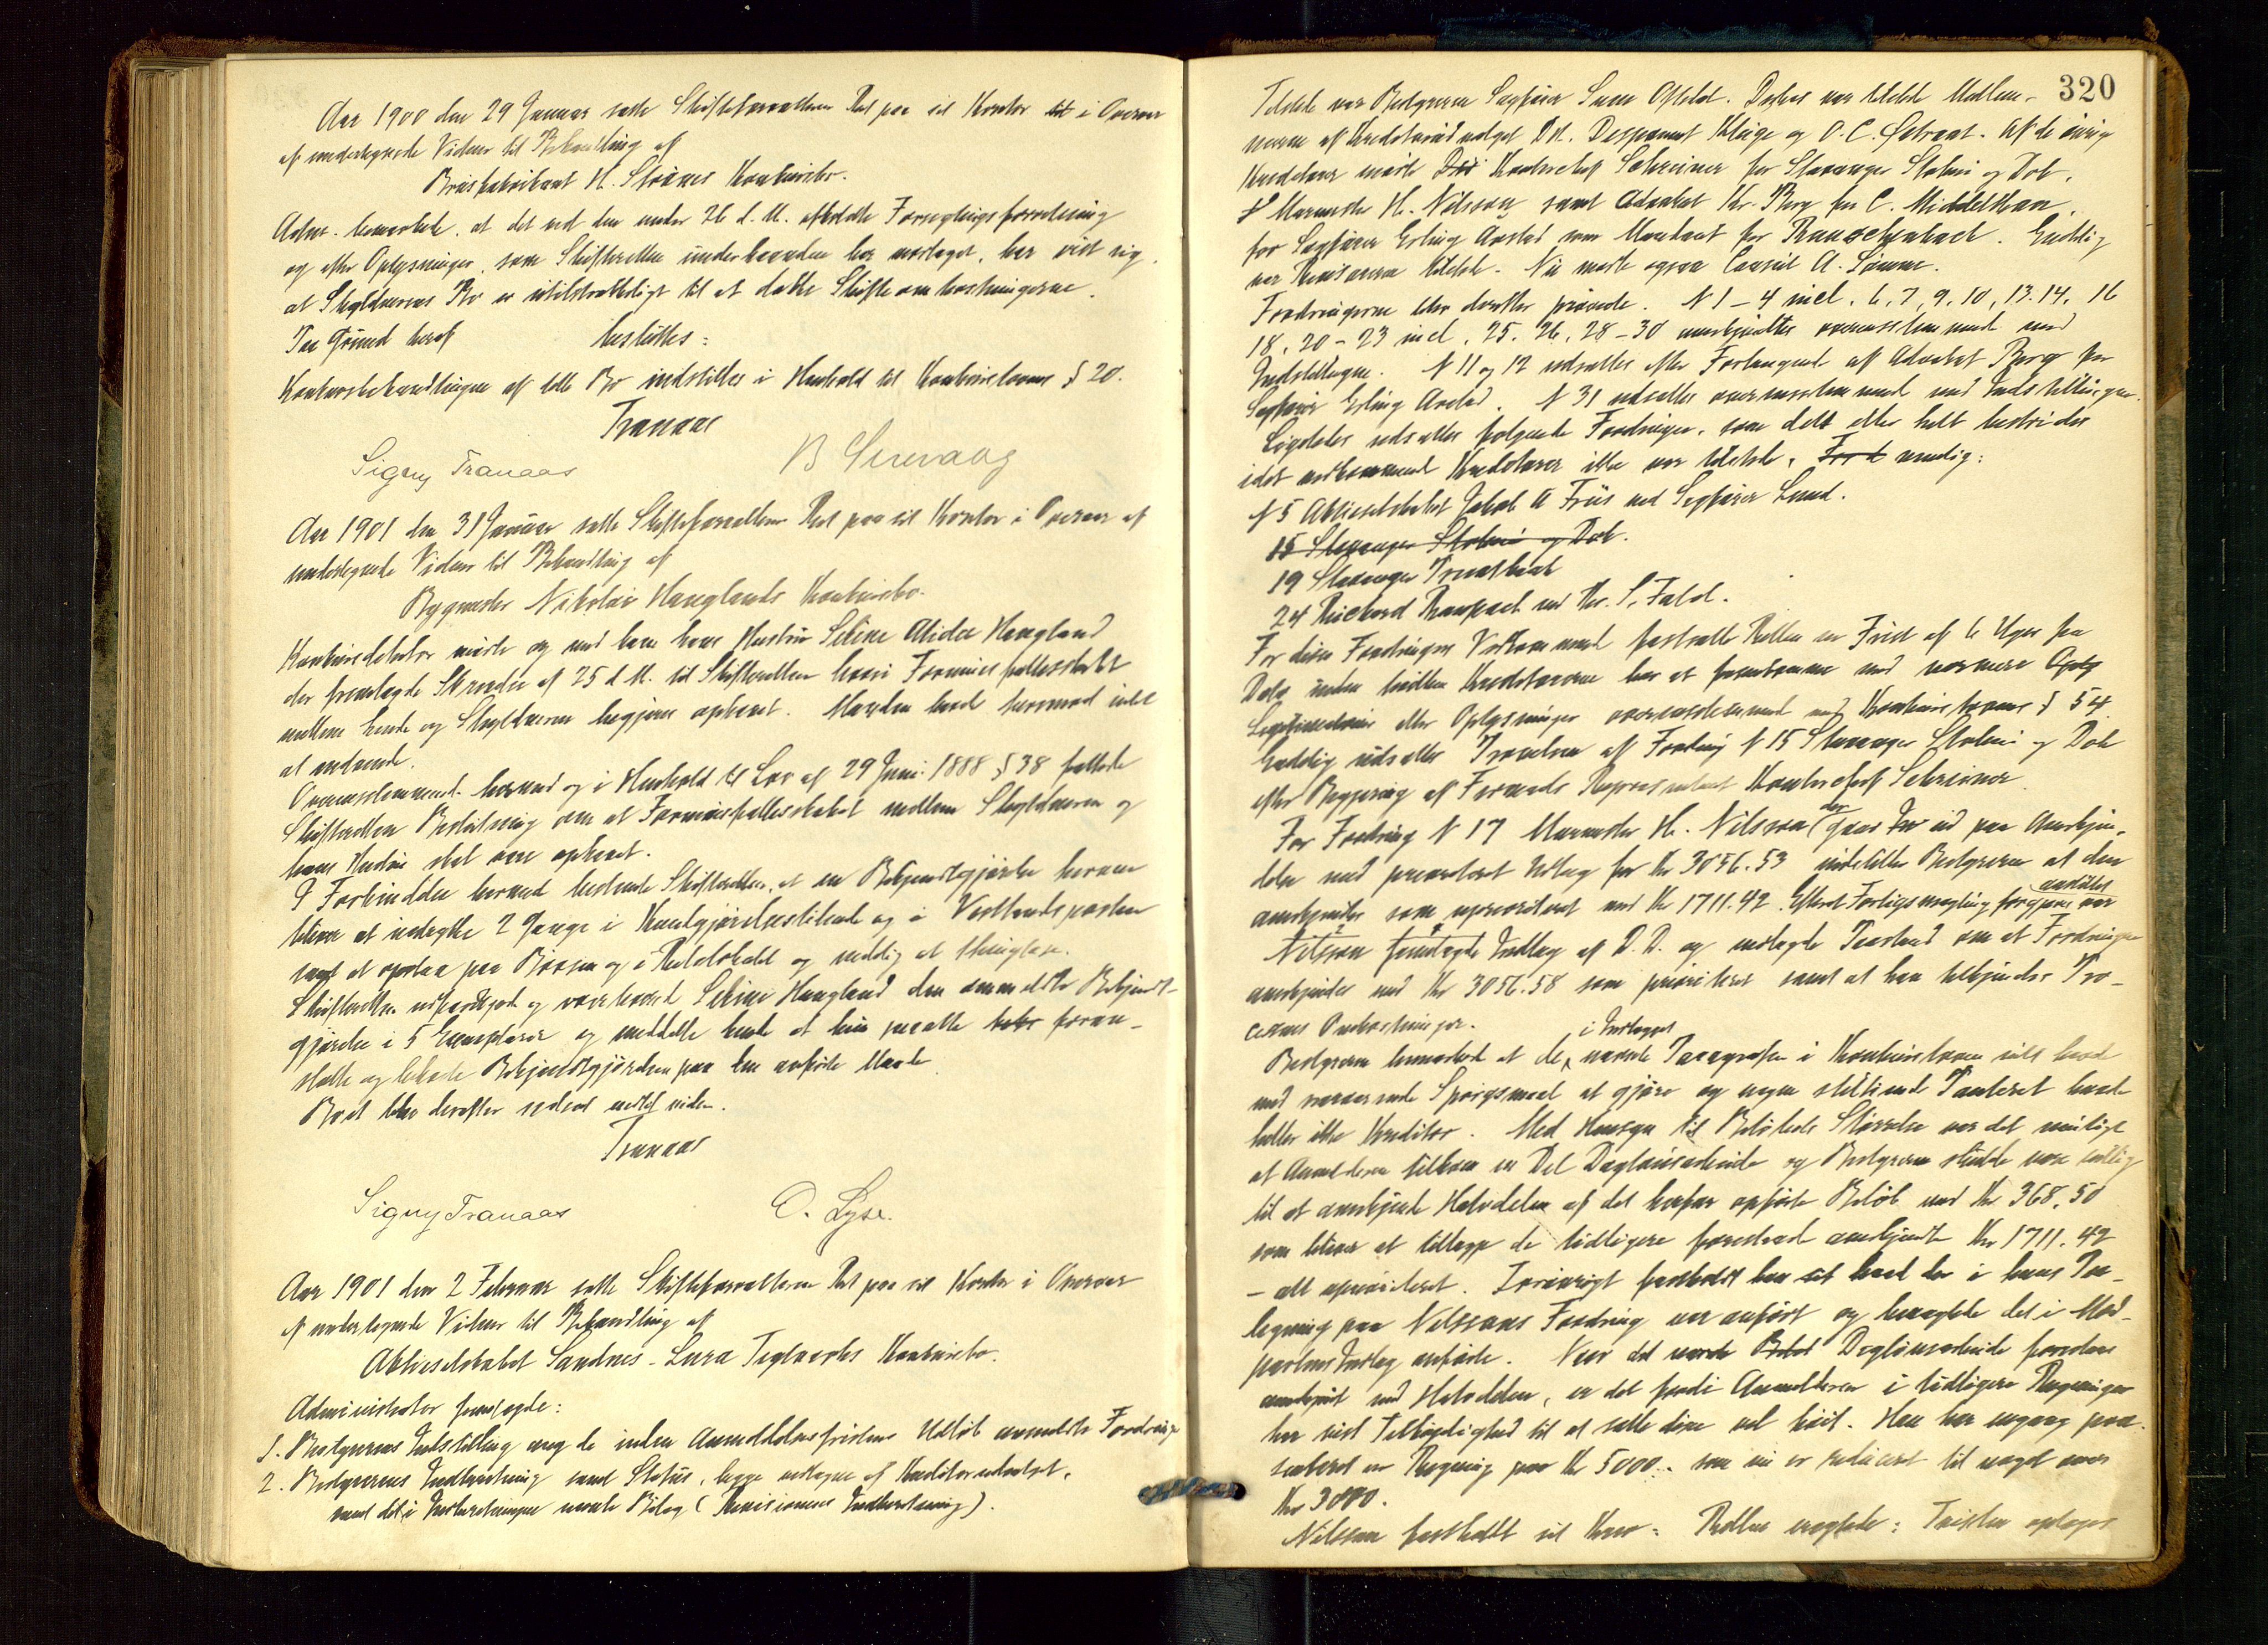 Aar 1900 den 29 Januar satte Skifteforvalteren Ret paa sit Kontor i Overvær
af undertegnede Vidner til Behandling af
Brusfabrikant H. Konkursbo.
Adm. bemærkede, at det ved den under 26 d. M. afholdte Forseglingsforretning
og efter Oplysninger, som Skifteretten underhaanden har modtaget, har vist sig,
at Skyldnerens Bo er utilstrækkeligt til at dække Skifteomkostningerne.
Paa Grund heraf besluttes:
Konkursbehandlingen af dette Bo indstilles i Henhold til Konkurslovens § 20.
Tranaas
Signy Tranaas B Sirevaag
Aar 1901 den 31 Januar satte Skifteforvalteren Ret paa sit Kontor i Overvær af
undertegnede Vidner til Behandling af
Bygmester Nikolai Hauglands Konkursbo.
Konkursdebitor mødte og med ham hans Hustru Sekine Alida Haugland
der fremlagde Skrivelse af 25 d. M. til Skifteretten hvori Formuesfællesskabet
mellem hende og Skyldneren begjæres ophævet. Manden havde hermod intet
at indvende.
Overensstemmende hermed og i Henhold til Lov af 29 Juni 1888 § 38 fattede
Skifteretten Beslutning om at Formuesfællesskabet mellem Skyldneren og
hans Hustru skal være ophævet.
I Forbindelse hermed bestemte Skifteretten, at en Bekjendtgjørelse herom
bliver at indrykke 2 Gange i Kundgjørelsestidende og i Vestlandsposten
samt at opslaa paa Børsen og i Retslokalet og endelig at thinglæse.
Skifteretten udfærdiget og overleverede Sekine Haugland den anmeldte Bekjendt-
gjørelse i 5 Exemplarer og meddelte hende at hun maatte foran-
stalte og bekoste Bekjendtgjørelsen paa den anførte Maade.
Boet blev derefter udsat indtil videre.
Tranaas
Signy Tranaas O. Lyse.
Aar 1901 den 2 Februar satte Skifteforvalteren Ret paa sit Kontor i Overvær
af undertegnede Vidner til Behandling af
Aktieselskabet Sandnes-Lura Teglværks Konkursbo.
Administrator fremlagde:
1. Bestyrerens Indstilling ang de inden Anmeldelsesfristens Udløb anmeldte Fordringer
2. Bestyrerens Indberetning samt Status, begge vedtagne af Kreditorudvalget,
samt det i Indberetningen nævnte Bilag (Revisionens Indberetning).
320
Tilstede var Bestyreren Sagfører Sven Oftedal. Desuden var tilstede Medlem-
merne af Kreditorudvalget DHrr. Dispaschør Kluge og O. C. Østraat. Af de øvrige
Kreditorer mødte Kontorchef Schreiner for Stavanger Støberi og Dok,
Murmester H. Nilsson samt Advokat Kr. Berg for C. Middelthon,
for Sagfører Erling Aarstad som Mandant for Rauschenbach. Endelig
var Revisorerne tilstede. Nu mødte ogsaa Consul A. Sømme.
Fordringerne blev derefter prøvede. N 1-4 incl, 6, 7, 9, 10, 13. 14, 16
18, 20-23 incl, 25. 26, 28-30 anerkjendtes overensstemmende med
Indstillingen. N 11 og 12 udsættes efter Forlangende af Advokat Berg for
Sagfører Erling Aarstad. N 31 udsættes overensstemmende med Indstillingen.
Ligeledes udsættes følgende Fordringer, som delt eller helt bestrides
idet vedkommende Kreditorer ikke var tilstede, nemlig:
N 5 Aktieselskabet Jakob A Friis ved Sagfører Lund.
15 Stavanger Støberi og Dok.
19 Stavanger Privatbank
24 Richard Raupach ved Kr. S. Fald.
For disse Fordringers Vedkommende fastsatte Retten en Frist af 6 Uger fra
Dato inden hvilken Kreditorerne har at fremkomme med nærmere
Legitimation eller Oplysninger overensstemmende med Konkurslovens § 54.
Endelig udsættes Prøvelsen af Fordring N 15 Stavanger Støberi og Dok
efter Begjæring af Firmaets Repræsentant Kontorchef Schreiner.
For Fordring N 17 Murmester H. Nilsson der gaar ud paa Anerkjen-
delse med prioriteret Udlæg for Kr 3056.53 indstillede Bestyreren at den
anerkjendes som uprioriteret med Kr 1711.42. Efterat Forligsmægling forgjæves var anstillet
Nilsson fremlagde Indlæg af D. D. og nedlagde Paastand om at Fordringen
anerkjendes med Kr 3056.58 som prioriteret samt at han tilkjendes Pro-
cessens Omkostninger.
Bestyreren bemærkede at de i Indlægget nævnte Paragrafer i Konkursloven intet havde
med nærværende Spørgsmaal at gjøre og nogen stiltiende Panteret havde
heller ikke Kreditor. Med Hensyn til Beløbets Størrelse var det muligt
at Anmelderen tilkom en Del Dagløns arbeide og Bestyreren skulde være villig
til at anerkjende Halvdelen af det herfor opførte Beløb med Kr 368.50
som bliver at tillægge de tidligere foreslaaede anerkjendte Kr 1711.42
- alt uprioriteret. Forøvrigt fastholdt han hvad der i hans Paa-
tegning paa Nilssons Fordring var anført og benægtede det i Mod-
partens Indlæg anførte. Naar det Dagløns arbeide foreslaas
anerkjendt med Halvdelen, er det fordi Anmelderen i tidligere Regninger
har vist Tilbøielighed til at sætte disse vel høit. Han har engang præ-
senteret en Regning paa Kr 5000.- som nu er reduceret til noget over
Kr 3000.
Nilsson fastholdt sit Krav. Retten eragtede: Tvisten optages